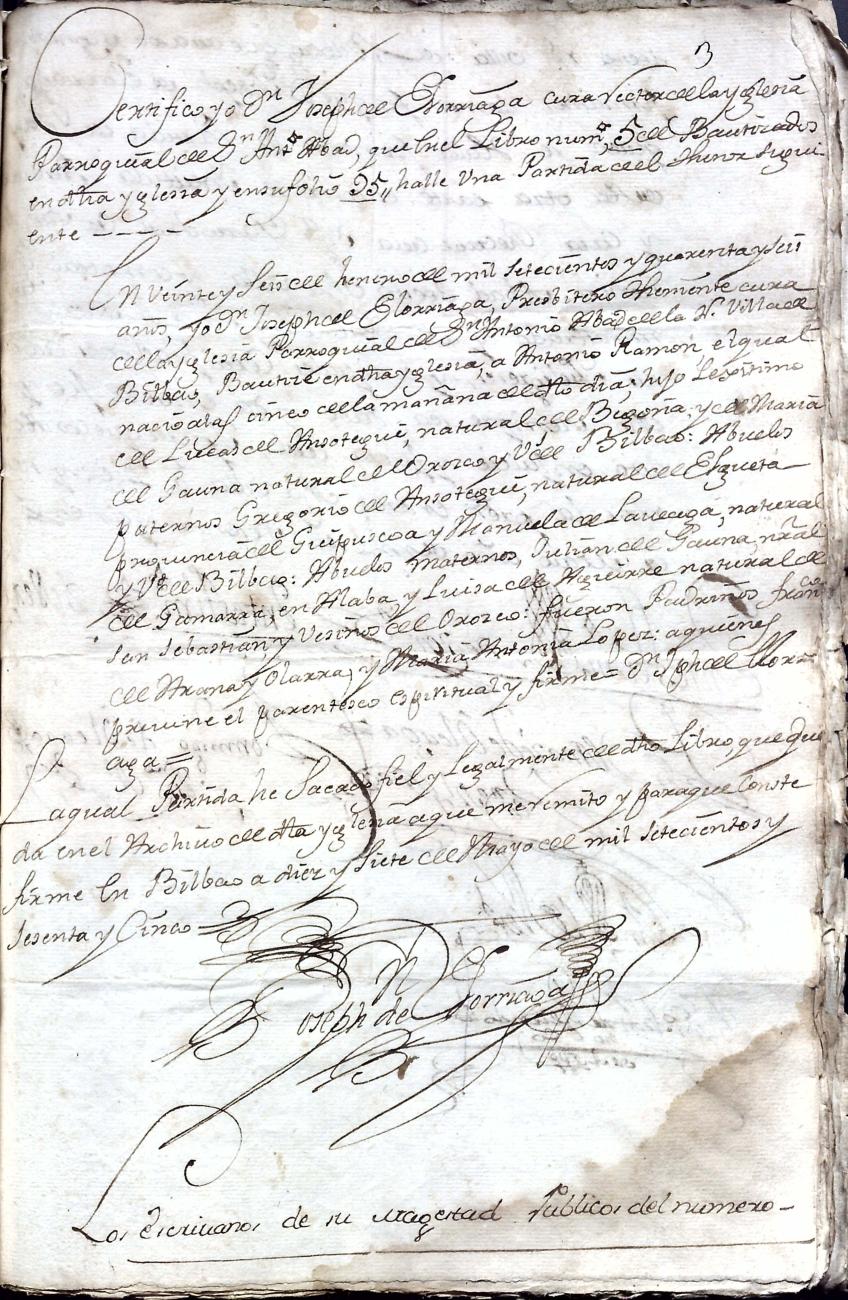 3
Certifico yo Dn Joseph de Elorriaga cura Rector de la yglesia
Parroquial de Sn Antº Abad, que en el Libro numº 5 de Bautizados
en dha yglesia y en su folio 95,, halle una Partida del thenor sigui
ente - - - - -
En veinte y seis de henero de mil setecientos y quarenta y seis
años, yo Dn Joseph de Elorriaga, Presbitero theniente cura
de la yglesia Parroquial de Sn Antonio Abad de la N. Villa de
Bilbao, Bautize en dha yglesia, a Antonio Ramon el qual
nacio a las cinco de la mañana de dho dia; hijo Lexitimo
de Lucas de Ansotegui, natural de Begoña, y de Maria
de Gauna natural de Orozco y Vs de Bilbao: Abuelos
paternos Gregorio de Ansotegui, natural de Elgueta
provincia de Guipuscoa y Manuela de Laucega, natural
y Vs de Bilbao: Abuelos maternos, Julian de Gauna, nral
de Gamarra, en Alaba y Luisa de Aguirre natural de
Sn Sebastian y Vesinos de Orozco: fueron Padrinos franco
de Arana y Olarra, y Maria Antonia Lopez: a quienes
previne el parentesco espiritual y firme = Dn Jph de Elorri
aga =
La qual Partida he Sacado fiel y Legalmente de dho Libro, que que
da en el Archivo de dha yglesia a que me remito y para que Conste
firme En Bilbao a diez y siete de Mayo de mil setecientos y
sesenta y Cinco =
Dn Joseph de Elorriaga
Los escrivanos de su Magestad Publicos del numero -